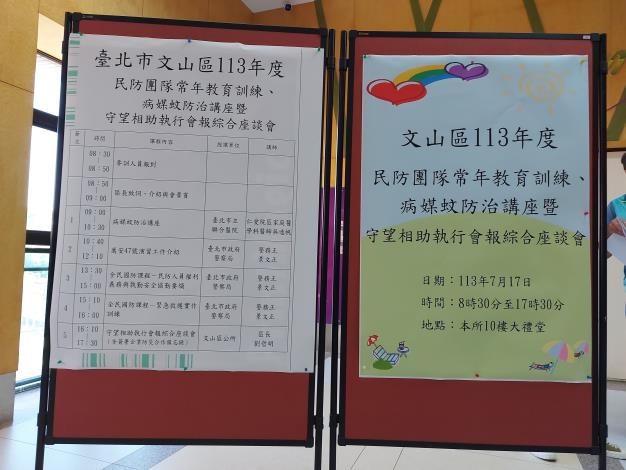 臺北市文山區113年度
民防團隊常年教育訓練、
病媒蚊防治講座暨
守望相助執行會報綜合座談會
時間 課程內容 授課單位 講師
08:30
08:50
參訓人員報到
08:50
09:00
區長致詞、介紹與會貴賓
1
09:00
10:30
病媒蚊防治講座
臺北市立
聯合醫院
仁愛院區家庭醫
學科醫師
2
10:40
12:10
萬安47號演習工作介紹
臺北市政府
警察局
警務正
景文正
3
13:30
15:00
全民國防課程—民防人員權利
義務與執勤安全協勤要領
臺北市政府
警察局
警務正
景文正
4
15:10
16:00
全民國防課程—緊急救護實作
訓練
臺北市政府
警察局
警務正
景文正
5
16:10
17:30
守望相助執行會報綜合座談會
文山區公所
區長
文山區113年度
民防團隊常年教育訓練、
病媒蚊防治講座暨
守望相助執行會報綜合座談會
日期：113年7月17日
時間：8時30分至17時30分
地點：本所10樓大禮堂